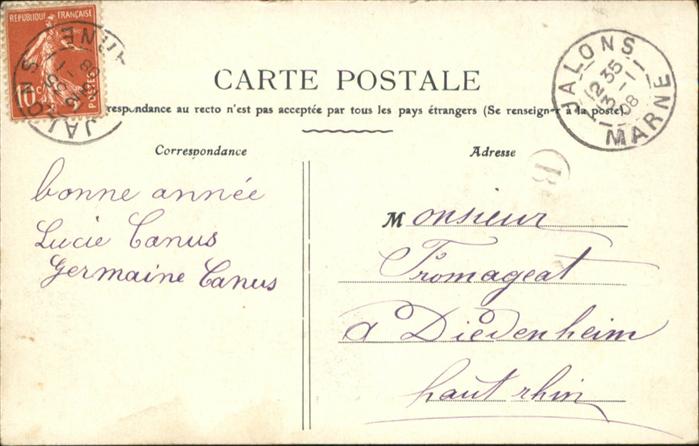 RÉPUBLIQUE FRANÇAISE
POSTES
10c
JALONS
MARNE
12 35
3 - 1
08
CARTE POSTALE
respondance au recto n'est pas acceptée par tous les pays étrangers (Se renseigner à la poste).
Correspondance
Adresse
B
bonne année
Lucie Canus
Germaine Canus
Monsieur
Fromageat
à Diedenheim
haut rhin
JALONS
MARNE
12 35
3 - 1
08